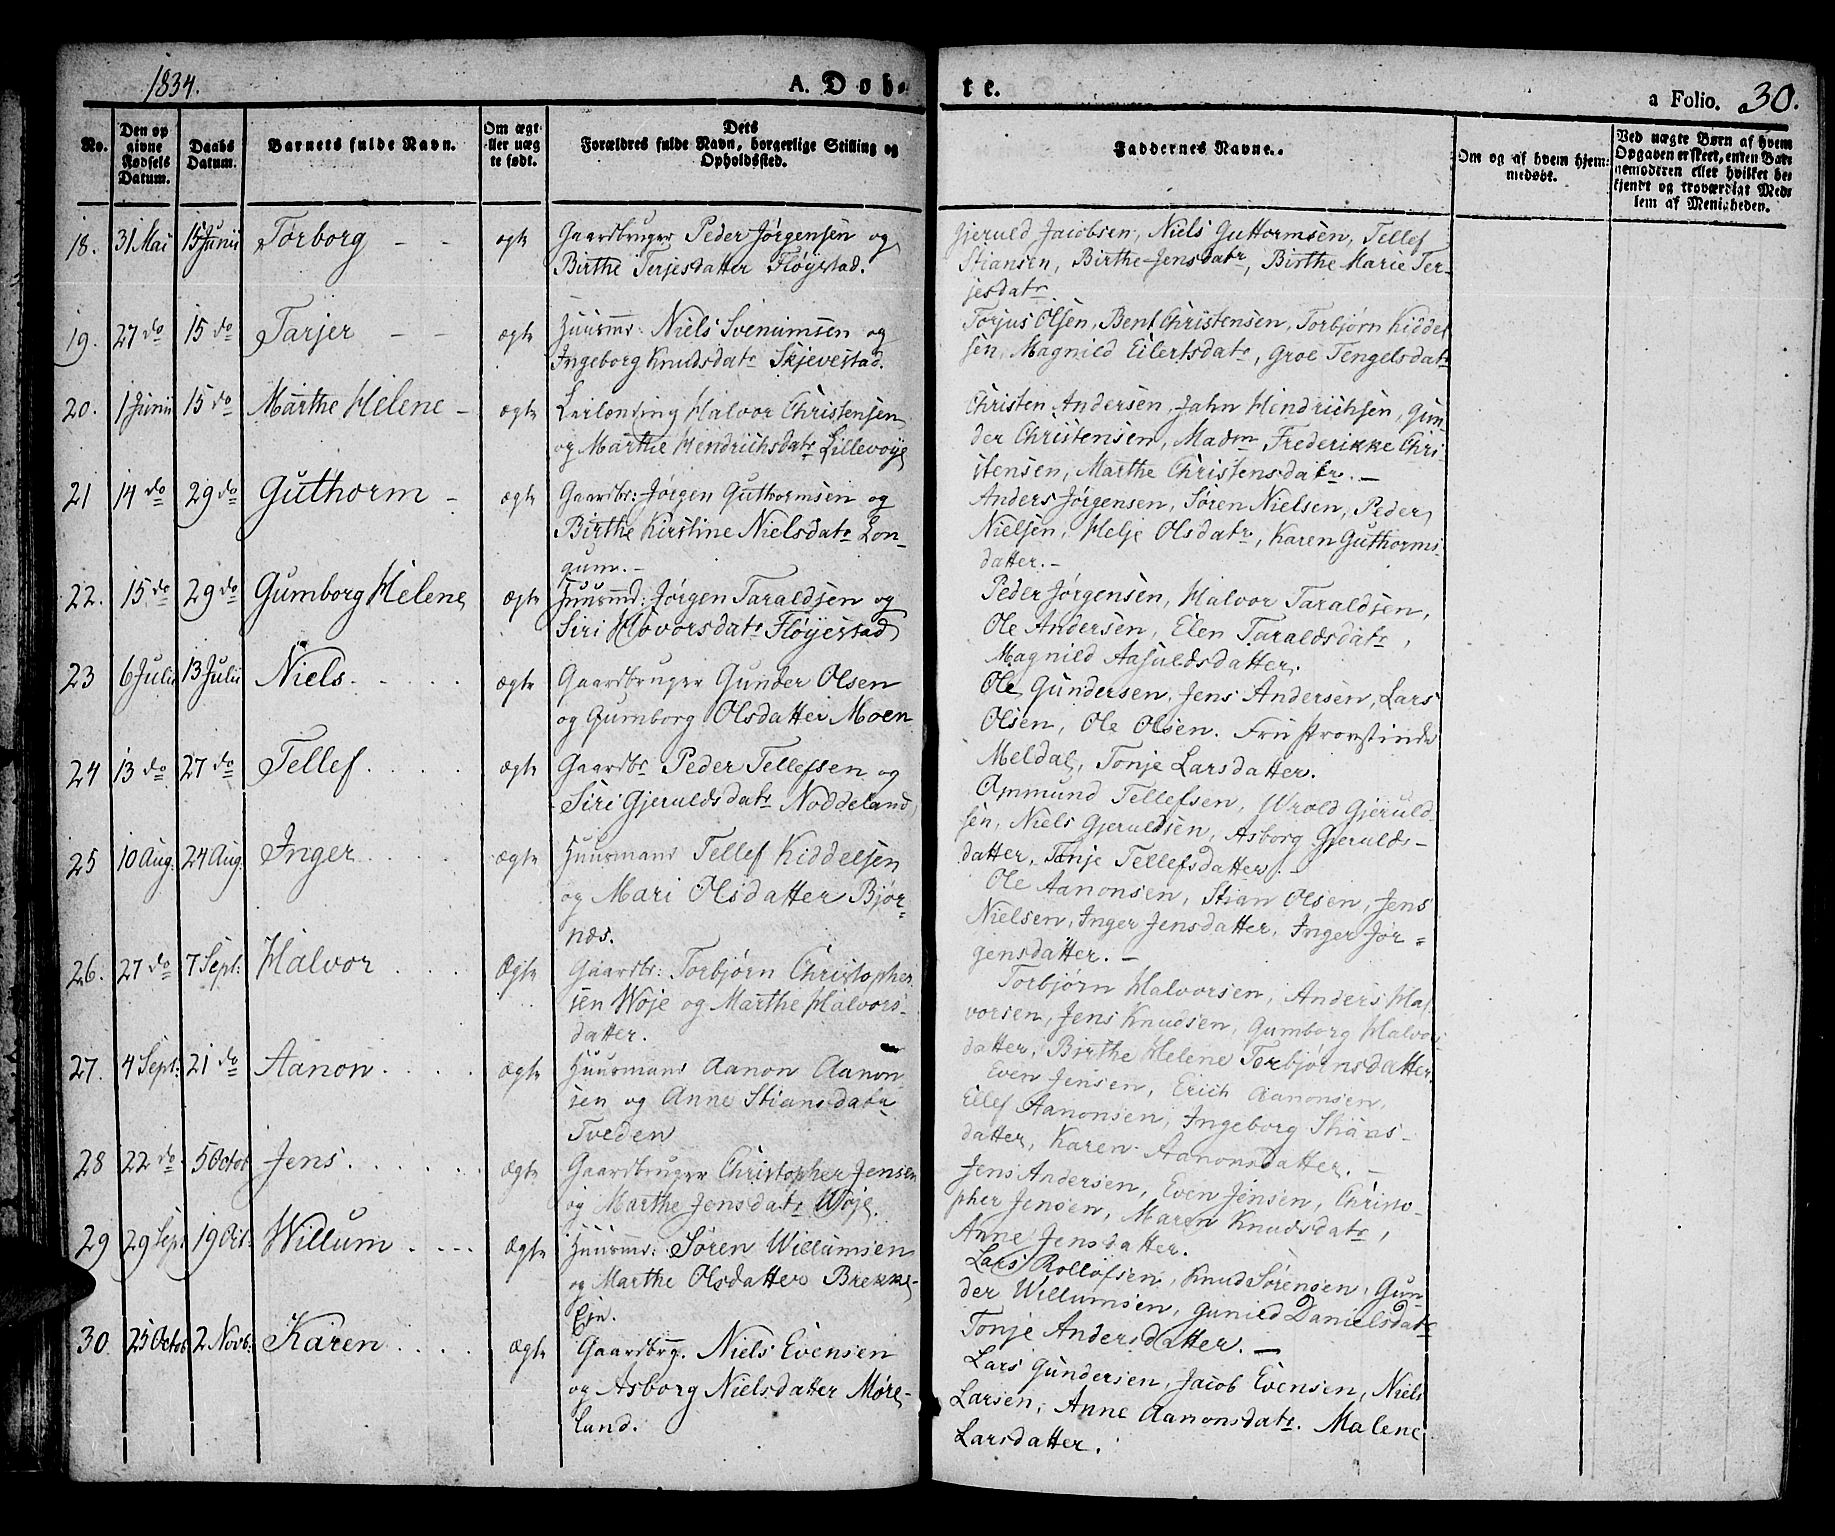 1834.
A. Døb-
te.
a Folio. 30.
No.
Den op
givne
Fødsels
Datum.
Daabs
Datum.
Barnets fulde Navn.
Om ægt-
eller uæg
te født.
Dets
Forældres fulde Navn, borgerlige Stilling og
Opholdssted.
Faddernes Navne.
Om og af hvem hjem-
medøbt.
Ved uægte Børn af hvem
Opgaven er skeet, enten Bar-
nemoderen eller hvilket be
kjendt og troværdigt Med-
lem af Menigheden.
18. 31 Mai 15 Junii Torborg - - ægte Gaardbruger Peder Jørgensen og
Birthe Terjesdatter Fløjestad.
Gjeruld Jacobsen, Niels Guttormsen, Tellef
Stiansen, Birthe Jensdatr, Birthe Marie Ter-
jesdatr
19. 27 do 15 do Tarjer - - ægte Huusmd: Niels Svenumsen og
Ingeborg Knudsdatr Skjevestad.
Torjus Olsen, Bent Christensen, Torbjørn Kiddel
sen, Magnild Eilertsdatr, Groe Tengelsdatr
20. 1 Junii 15 do Marthe Helene - ægte Leilænding Halvor Christensen
og Marthe Hendrichsdatr Lillevøje
Christen Andersen, Jahn Hendrichsen, Gun-
der Christensen, Madm Frederikke Chri-
stensen, Marthe Christensdatr. -
21 14 do 29 do Guthorm - ægte Gaardbr: Jørgen Guthormsen og
Birthe Kirstine Nielsdatr Lon-
gum. -
Anders Jørgensen, Søren Nielsen, Peder
Nielsen, Helje Olsdatr, Karen Guthorms-
datter. -
22. 15 do 29 do Gumborg Helene ægte Huusmd: Jørgen Taraldsen og
Siri Hovorsdatr Fløjestad
Peder Jørgensen, Halvor Taraldsen,
Ole Andersen, Elen Taraldsdatr,
Magnild Aasuldsdatter.
23 6 Julii 13 Julii Niels. ægte Gaardbruger Gunder Olsen
og Gumborg Olsdatter Moen
Ole Gundersen, Jens Andersen, Lars
Olsen, Ole Olsen. Fru Provstinde
Meldal, Tonje Larsdatter.
24 13 do 27 do Tellef. ægte Gaardbr Peder Tellefsen og
Siri Gjeruldsdatr Noddeland
Ommund Tellefsen, Wrold Gjeruld-
sen, Niels Gjeruldsen, Asborg Gjerulds-
datter, Tonje Tellefsdatter. -
25 10 Aug. 24 Aug. Inger ægte Huusmand Tellef Kiddelsen
og Mari Olsdatter Bjor-
næs.
Ole Aanonsen, Stian Olsen, Jens
Nielsen, Inger Jensdatter, Inger Jør-
gensdatter. -
26. 27 do 7 Sept: Halvor ægte Gaardbr: Torbjørn Christopher
sen Woje og Marthe Halvors-
datter.
Torbjørn Halvorsen, Anders Hal
vorsen, Jens Knudsen, Gumborg Halvors
datter, Birthe Helene Torbjørnsdatter.
27. 4 Sept: 21 do Aanon ægte Huusmand Aanon Aanon-
sen og Anne Stiansdatr
Tveden
Even Jensen, Erich Aanonsen,
Ellef Aanonsen, Ingeborg Stians-
datter, Karen Aanonsdatter. -
28 22 do 5 Octob Jens. ægte Gaardbruger Christopher Jensen
og Marthe Jensdatr Woje.
Jens Andersen, Even Jensen, Christo-
pher Jensen, Maren Knudsdatr,
Anne Jensdatter.
29 29 Sept 19 Oct. Willum ægte Huusmd: Søren Willumsen
og Marthe Olsdatter Brekke-
Eje.
Lars Rollofsen, Knud Sørensen, Gun-
der Willumsen, Gunild Danielsdatr
Tonje Andersdatter. -
30 25 Octob 2 Novb: Karen ægte Gaardbrg. Niels Evensen
og Asborg Nielsdatter Møre-
land.
Lars Gundersen, Jacob Evensen, Niels
Larsen, Anne Aanonsdatr. Malene
Larsdatter.